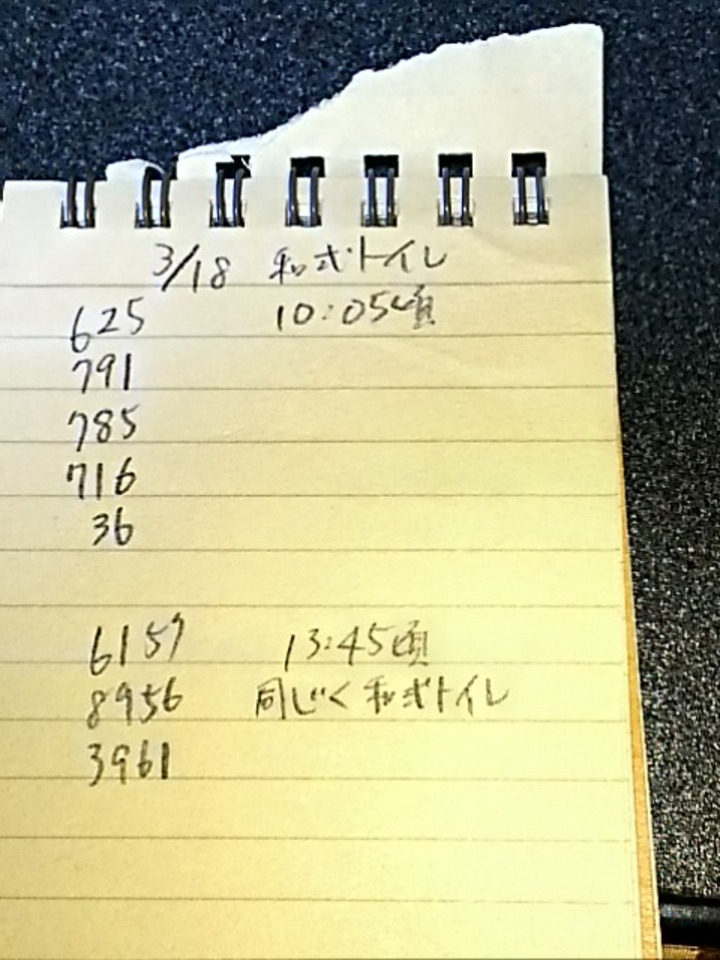 3/18 和式トイレ
625 10:05頃
791
785
716
36
6157 13:45頃
8956 同じく和式トイレ
3961